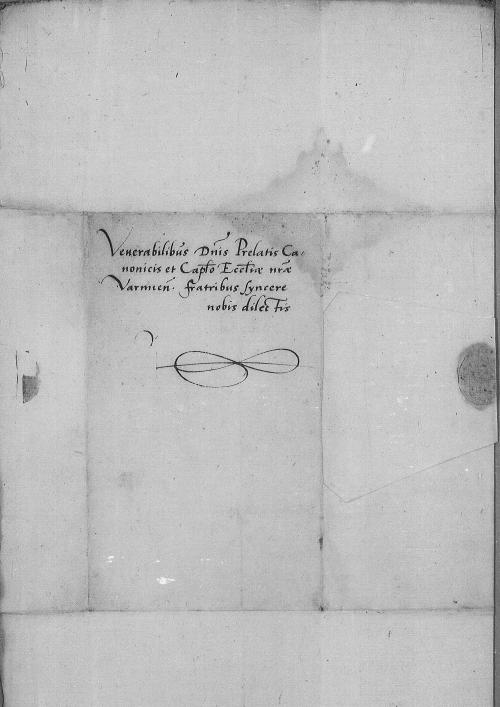 Venerabilibus Dnis Prelatis Ca-
nonicis et Caplo Eccliæ nræ
Varmien. fratribus syncere
nobis dilectis